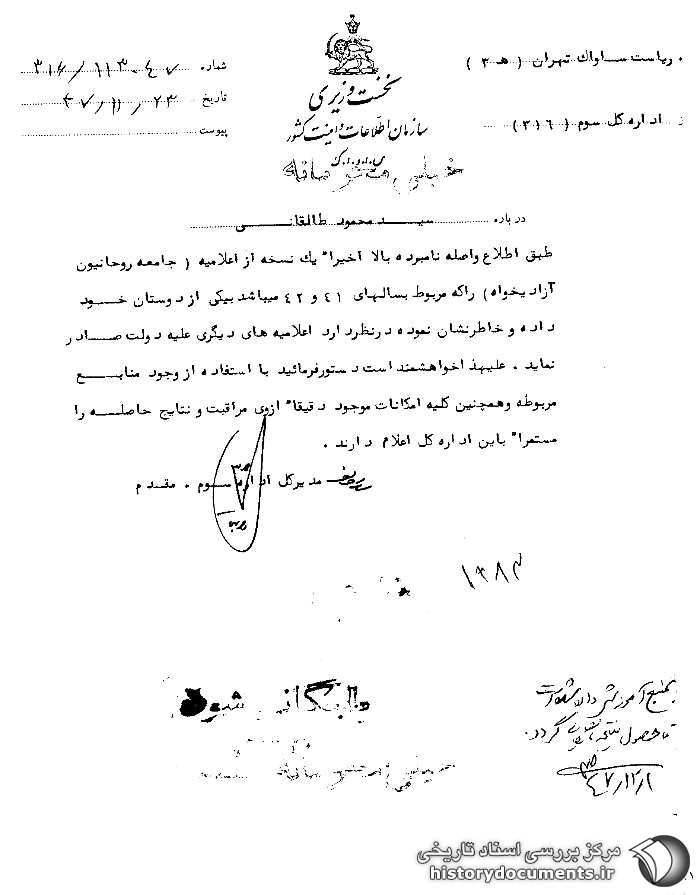 ریاست ساواک تهران ( ه‍ ۳ )
از اداره کل سوم ( ۳۱۶ )
نخست وزیری
سازمان اطلاعات و امنیت کشور
س.ا.و.ا.ک
خیلی محرمانه
شماره ۳۱۶/۱۱۳۰۴۷
تاریخ ۴۷/۱۱/۲۳
پیوست
درباره سید محمود طالقانی
طبق اطلاع واصله نامبرده بالا اخیراً یک نسخه از اعلامیه ( جامعه روحانیون
آزادیخواه) راکه مربوط بسالهای ۴۱ و ۴۲ میباشد بیکی از دوستان خود
داده و خاطرنشان نموده درنظردارد اعلامیه های دیگری علیه دولت صادر
نماید . علیهذا خواهشمند است دستورفرمائید با استفاده از وجود منابع
مربوطه وهمچنین کلیه امکانات موجود دقیقاً ازوی مراقبت و نتایج حاصله را
مستمراً باین اداره کل اعلام دارند .
مدیرکل اداره سوم . مقدم
۱۳۸۳
بایگانی شود
خیلی محرمانه
بمنبع آموزش داده شده است
تا حصول نتیجه بایگانی گردد.
۴۷/۱۲/۱
مرکز بررسی اسناد تاریخی
historydocuments.ir